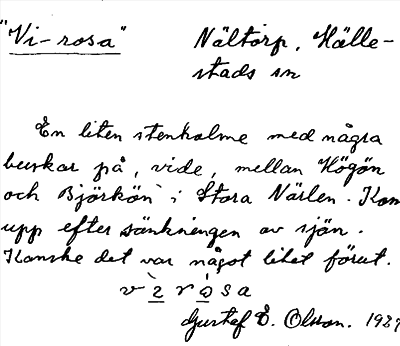 "Vi-rosa" Nältorp, Hälle-
stads sn
En liten stenholme med några
buskar på, vide, mellan Högön
och Björkön i Stora Närlen. Kom
upp efter sänkningen av sjön.
Kanske det var något litet förut.
Gustaf E. Olsson. 192